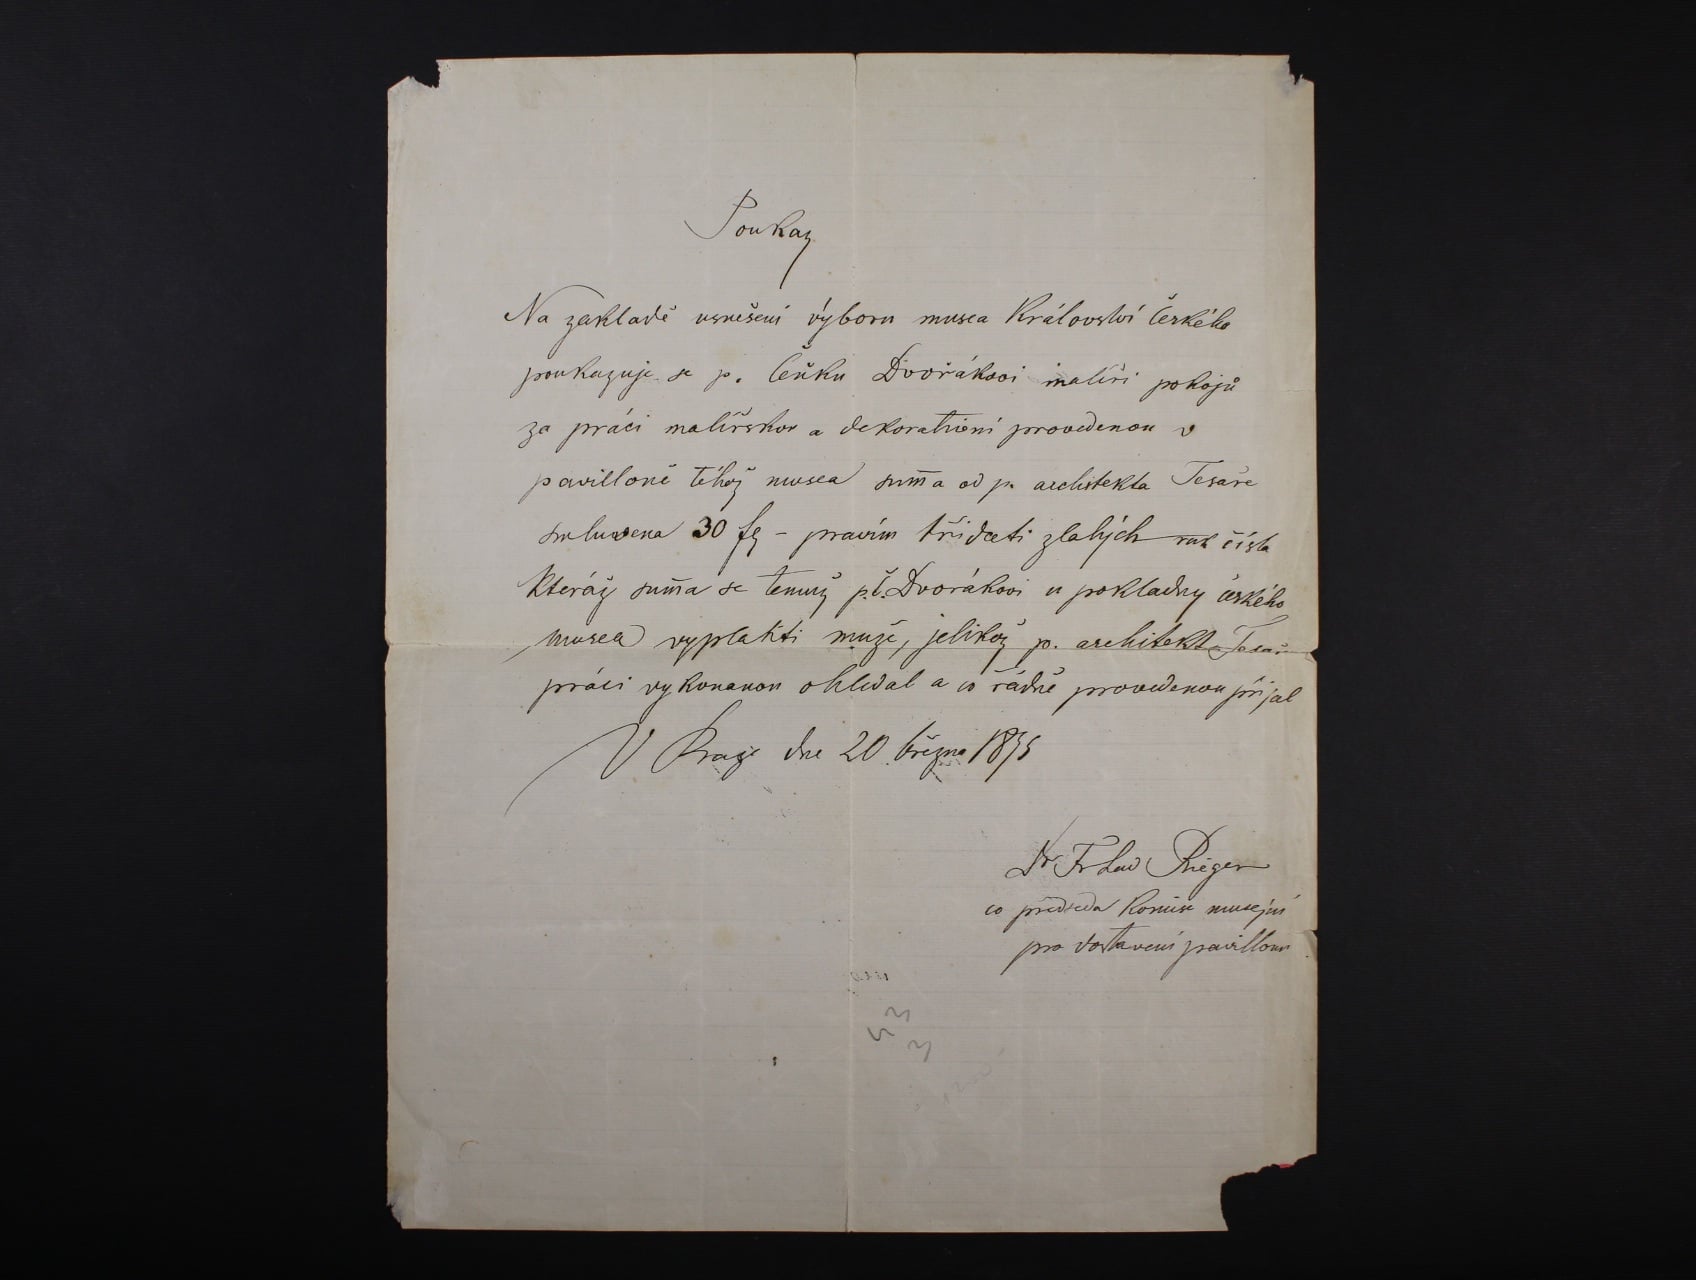 Poukaz
Na zakladě usnešení výboru musea Království Českého
poukazuje se p. Čeňku Dvořákovi malíři pokojů
za práci malířskou a dekorativní provedenou v
pavilloně téhož musea sum̄a od p. architekta Tesaře
smluvena 30 fl – pravím třidceti zlatých čísla
kteráž sum̄a se temuž p. Č. Dvorákovi u pokladny českého
musea vyplatiti muže, jelikož p. architekt Tesař
práci vykonanou ohledal a co řádně provedenou přijal
V Praze dne 20 března 1895
Dr Fr Lad Rieger
co předseda komise musejní
pro dostavení pavillonu